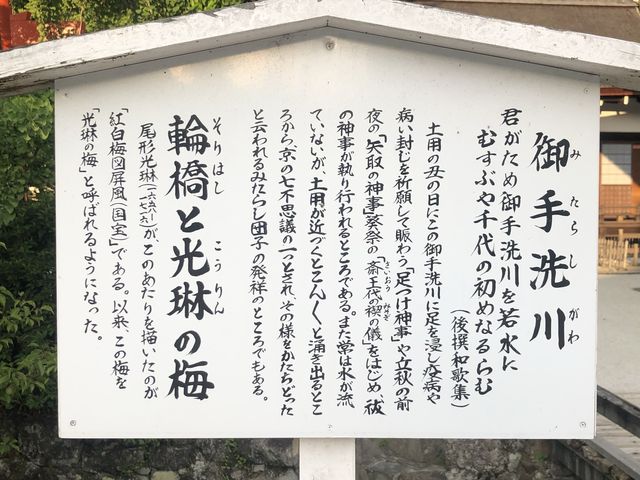 御手洗川
みたらしがわ
君がため御手洗川を若水に
むすぶや千代の初めなるらむ
（後撰和歌集）
土用の丑の日にこの御手洗川に足を浸し疫病や
病い封じを祈願して賑わう「足つけ神事」や立秋の前
夜の「矢取の神事」葵祭の「斎王代の禊の儀」をはじめ、祓
さいおう
みそぎ
の神事が執り行われるところである。また常は水が流
ていないが、土用が近づくとこんく と涌き出るとこ
ろから、京の七不思議の一つとされ、その様をかたちどった
と云われるみたらし団子の発祥のところでもある。
輪橋と光琳の梅
そりはし
こうりん
尾形光琳（一六五八〜一七一六）が、このあたりを描いたのが
「紅白梅図屏風（国宝）」である。以来、この梅を
「光琳の梅」と呼ばれるようになった。